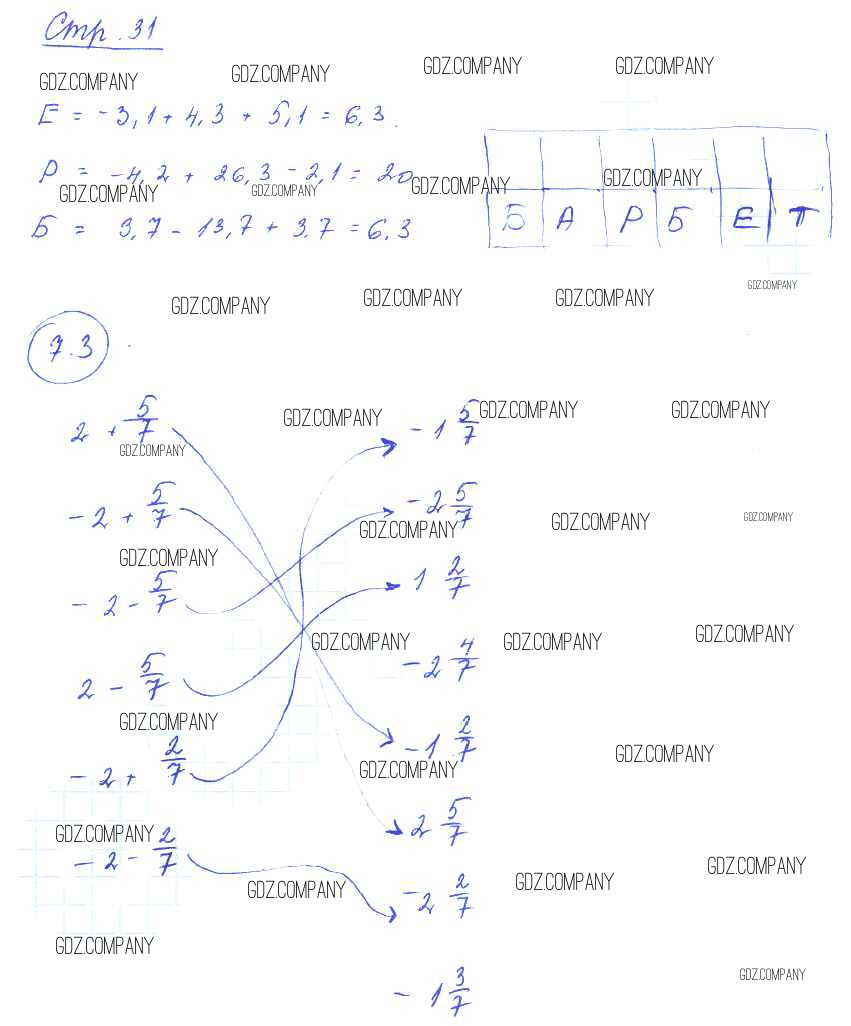 Стр. 31
GDZ.COMPANY GDZ.COMPANY GDZ.COMPANY GDZ.COMPANY
E = -3,1 + 4,3 + 5,1 = 6,3.
P = -4,2 + 26,3 - 2,1 = 20
GDZ.COMPANY GDZ.COMPANY GDZ.COMPANY GDZ.COMPANY
Б = 3,7 - 13,7 + 3.7 = 6.3
Б А Р Б Е Т
GDZ.COMPANY
GDZ.COMPANY GDZ.COMPANY GDZ.COMPANY
7.3
2 + 5/7 GDZ.COMPANY - 1 5/7 GDZ.COMPANY GDZ.COMPANY
GDZ.COMPANY
-2 + 5/7 -2 5/7
GDZ.COMPANY GDZ.COMPANY GDZ.COMPANY
GDZ.COMPANY
-2 - 5/7 1 2/7
GDZ.COMPANY GDZ.COMPANY GDZ.COMPANY
2 - 5/7 -2 4/7
GDZ.COMPANY
-2 + 2/7 -1 2/7
GDZ.COMPANY GDZ.COMPANY
GDZ.COMPANY 2 5/7
-2 - 2/7 -2 2/7
GDZ.COMPANY GDZ.COMPANY GDZ.COMPANY
GDZ.COMPANY
GDZ.COMPANY
- 1 3/7